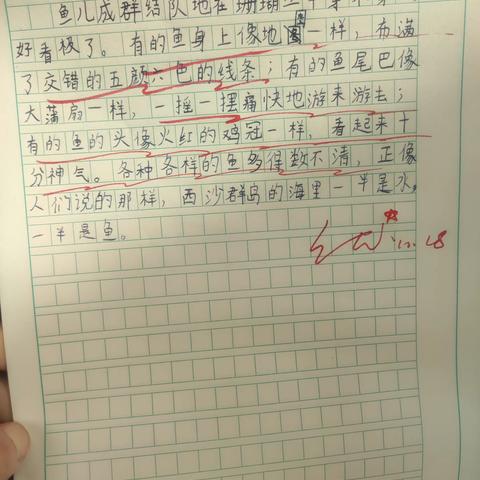 鱼儿成群结队地在珊瑚丛中穿
好看极了。有的鱼身上像地图一样，布满
了交错的五颜六色的线条；有的鱼尾巴像
大蒲扇一样，一摇一摆痛快地游来游去；
有的鱼的头像火红的鸡冠一样，看起来十
分神气。各种各样的鱼多得数不清，正像
人们说的那样，西沙群岛的海里一半是水，
一半是鱼。